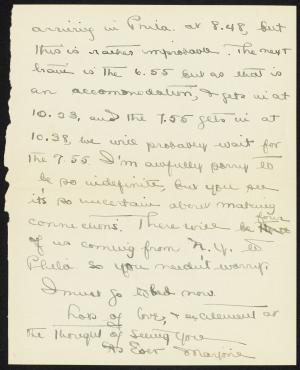 arriving in Phila. at 8.48, but
this is rather improbable. The next
train is the 6.55 but as that is
an accomodation, & gets in at
10.23, and the 7.55 gets in at
10.38, we will probably wait for
the 7.55. I'm awfully sorry to
be so indefinite, but you see
it's so uncertain about making
connections. There will be four
of us coming from N.Y. to
Phila so you needn't worry.
I must go to bed now
Lots of love, & excitement at
the thought of seeing you
As Ever Marjorie